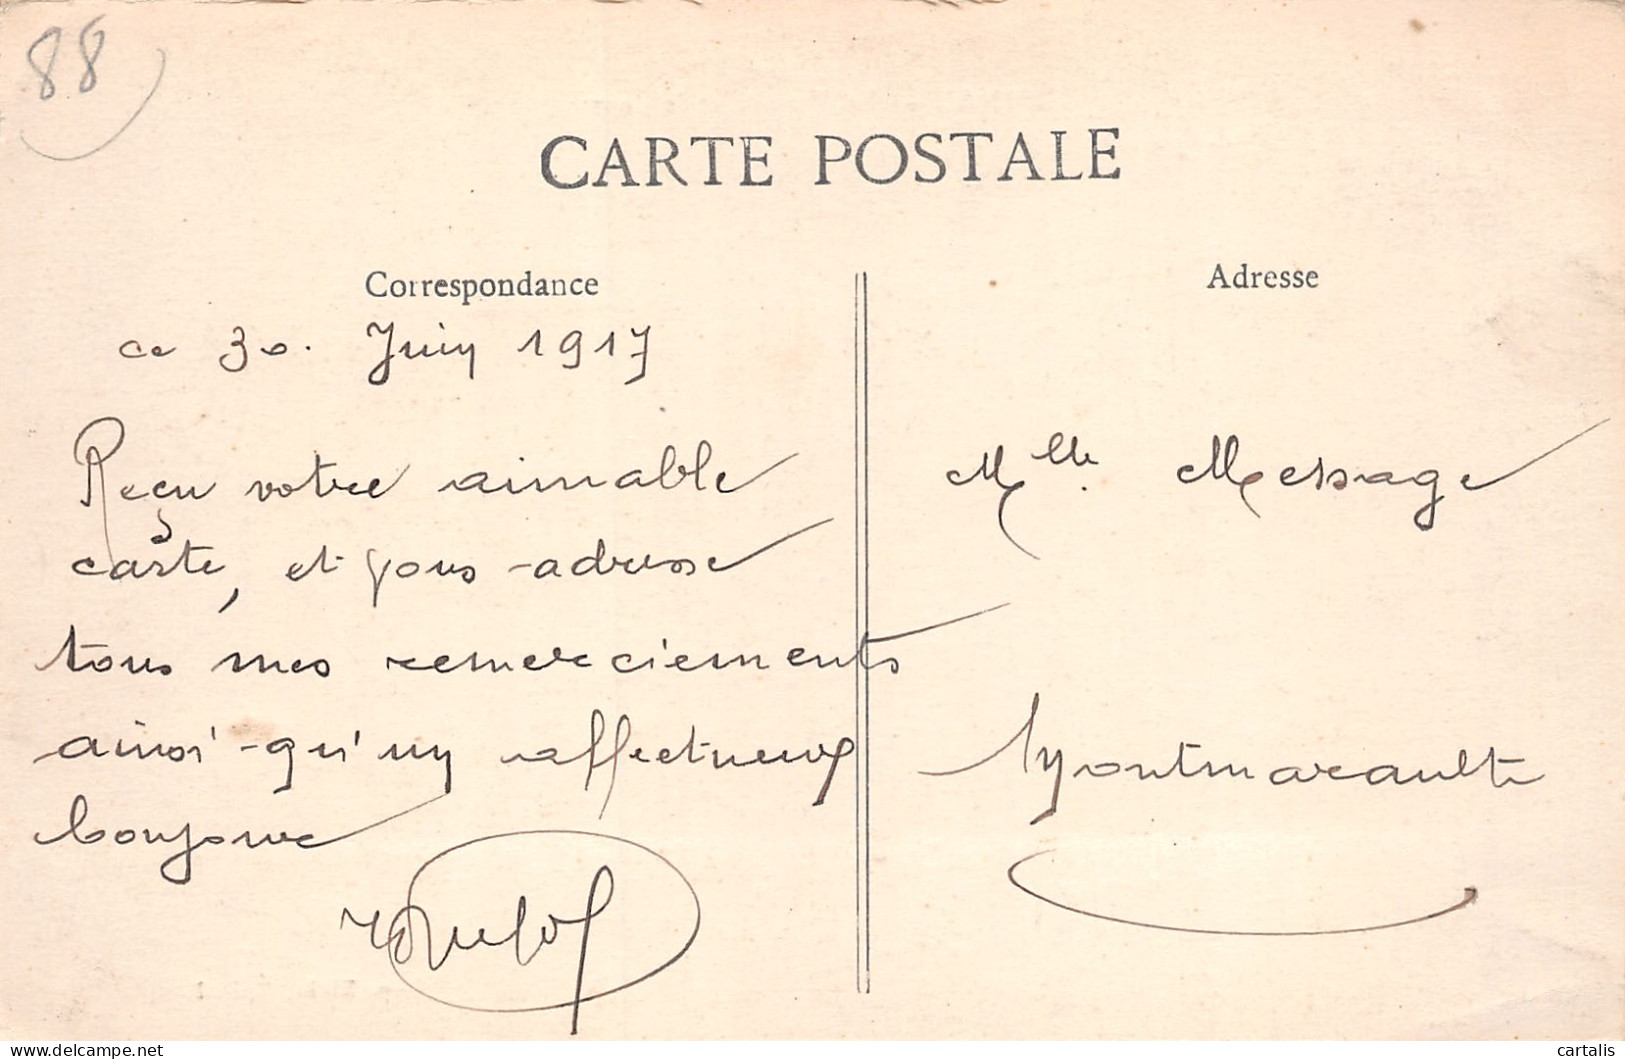 88
CARTE POSTALE
Correspondance
ce 30. Juin 1917
Reçu votre aimable
carte, et vous adresse
tous mes remerciements
ainsi qu'un affectueux
bonjour
Adresse
Mlle. Message
Montmarault
delcampe.net
cartalis